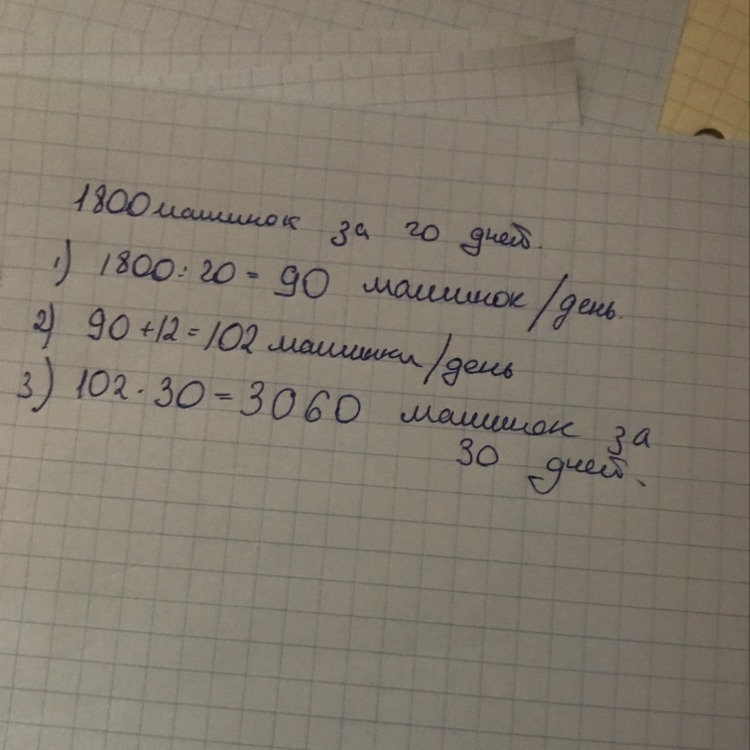 1800 машинок за 20 дней.
1) 1800:20=90 машинок/день.
2) 90+12=102 машинки/день
3) 102·30=3060 машинок за
30 дней.